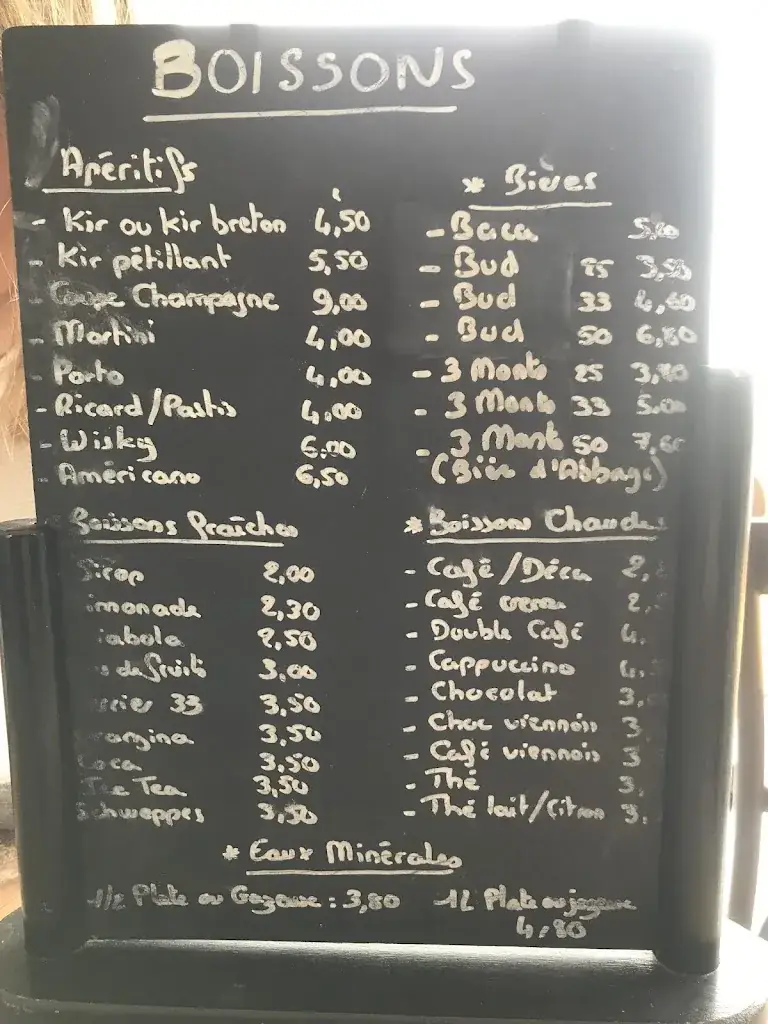 BOISSONS
Apéritifs
- Kir ou kir breton 4,50
- Kir pétillant 5,50
- Coupe Champagne 9,00
- Martini 4,00
- Porto 4,00
- Ricard/Pastis 4,00
- Wisky 6,00
- Américano 6,50
* Bières
- Baca
- Bud 25 3,50
- Bud 33 4,60
- Bud 50 6,80
- 3 Monts 25
- 3 Monts 33 5,00
- 3 Monts 50 7,60
(Bière d'Abbaye)
Boissons fraîches
Sirop 2,00
imonade 2,30
iabolo 2,50
us de fruits 3,00
rrier 33 3,50
rangina 3,50
Coca 3,50
Ice Tea 3,50
Schweppes 3,50
* Boissons Chaudes
- Café/Déca 2,
- Café creme 2,
- Double Café 4,
- Cappuccino 4,
- Chocolat 3,
- Choc viennois 3
- Café viennois 3
- Thé 3,
- Thé lait/Citron 3,
* Eaux Minérales
1/2 Plate ou Gazeuse : 3,80
1L Plate ou gazeuse
4,80